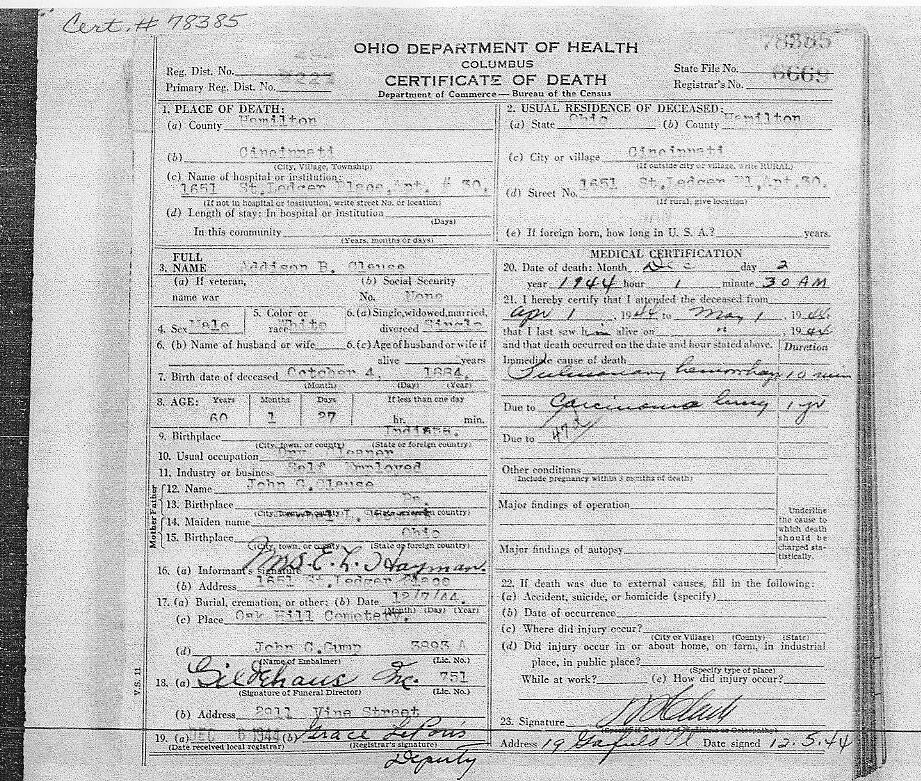 Cert. # 78385
OHIO DEPARTMENT OF HEALTH
COLUMBUS
CERTIFICATE OF DEATH
Department of Commerce — Bureau of the Census
Reg. Dist. No.
Primary Reg. Dist. No.
78385
State File No.
Registrar's No. 6669
1. PLACE OF DEATH:
(a) County Hamilton
(b) Cincinnati
(City, Village, Township)
(c) Name of hospital or institution:
1651 St.Ledger Place,Apt. # 30.
(If not in hospital or institution, write street No. or location)
(d) Length of stay: In hospital or institution
(Days)
In this community
(Years, months or days)
2. USUAL RESIDENCE OF DECEASED:
(a) State Ohio (b) County Hamilton
(c) City or village Cincinnati
(If outside city or village, write RURAL)
(d) Street No. 1651 St.Ledger Pl,Apt.30.
(If rural, give location)
(e) If foreign born, how long in U. S. A.? years.
FULL
3. NAME Addison B. Clause
(a) If veteran,
name war
(b) Social Security
No. None
4. Sex Male
5. Color or
race White
6. (a) Single, widowed, married,
divorced Single
6. (b) Name of husband or wife
6. (c) Age of husband or wife if
alive years
7. Birth date of deceased October 4, 1884.
(Month) (Day) (Year)
8. AGE: Years Months Days If less than one day
60 1 27 hr. min.
9. Birthplace Indiana.
(City, town, or county) (State or foreign country)
10. Usual occupation Dry Cleaner
11. Industry or business Self Employed
Mother Father
12. Name John C.Clause
13. Birthplace Pa.
(City, town, or county) (State or foreign country)
14. Maiden name
15. Birthplace Ohio
(City, town, or county) (State or foreign country)
16. (a) Informant's signature Mrs. E. L. Hayman.
(b) Address 1651 St.Ledger Place
17. (a) Burial, cremation, or other: (b) Date 12/7/44.
(Month) (Day) (Year)
(c) Place Oak Hill Cemetery.
(d) John C.Gump 3893 A
(Name of Embalmer) (Lic. No.)
18. (a) Gildehaus Inc. 751
(Signature of Funeral Director) (Lic. No.)
(b) Address 2911 Vine Street
19. (a) DEC 6 1944 (b) Grace
(Date received local registrar) (Registrar's signature)
Deputy
V.S. 11
MEDICAL CERTIFICATION
20. Date of death: Month Dec day 2
year 1944 hour 1 minute 30 AM
21. I hereby certify that I attended the deceased from
Apr 1, 1944 to May 1, 1944
that I last saw him alive on 1944
and that death occurred on the date and hour stated above.
Duration
Immediate cause of death
Pulmonary hemorrhage 10 min
Due to Carcinoma lung 1 yr
Due to
Other conditions
(Include pregnancy within 3 months of death)
Major findings of operation
Major findings of autopsy
Underline
the cause to
which death
should be
charged sta-
tistically.
22. If death was due to external causes, fill in the following:
(a) Accident, suicide, or homicide (specify)
(b) Date of occurrence
(c) Where did injury occur?
(City or Village) (County) (State)
(d) Did injury occur in or about home, on farm, in industrial
place, in public place?
(Specify type of place)
While at work? (e) How did injury occur?
23. Signature
(Specify if Doctor of Medicine or Osteopathy)
Address 19 Garfield Pl Date signed 12.5.44